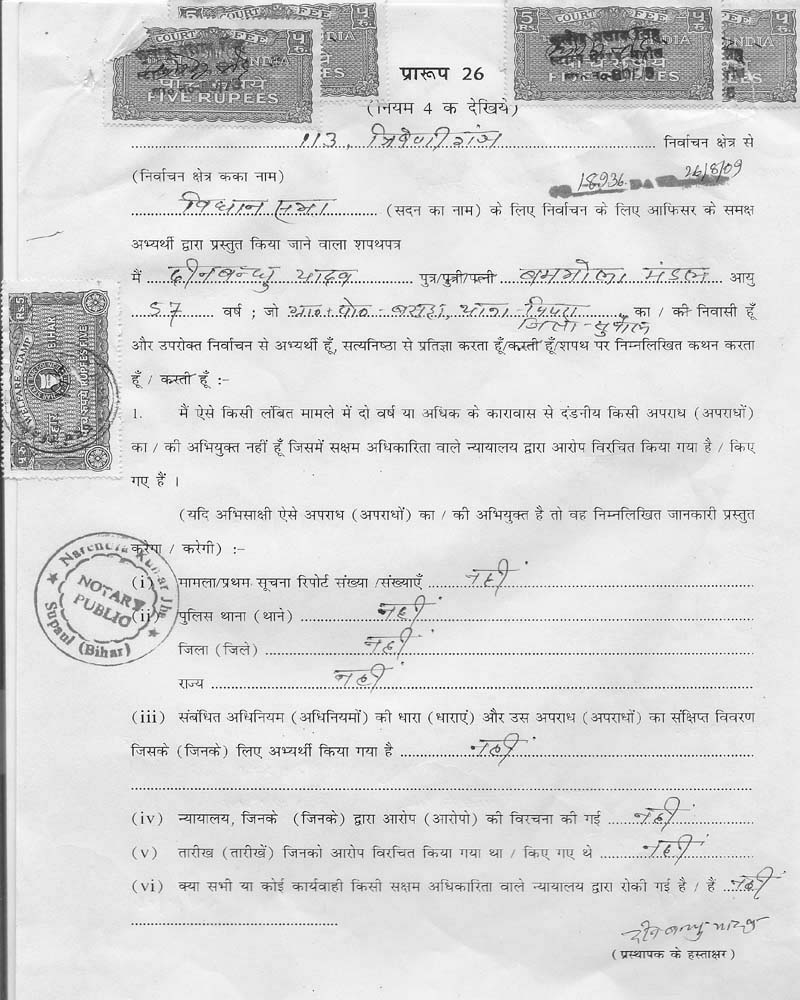 COURT FEE
INDIA
FIVE RUPEES
5 RS.
COURT FEE
INDIA
FIVE RUPEES
प्रारूप 26
(नियम 4 क देखिये)
113, त्रिवेणीगंज निर्वाचन क्षेत्र से
(निर्वाचन क्षेत्र कका नाम) 18936 26/8/09
विधान सभा (सदन का नाम) के लिए निर्वाचन के लिए आफिसर के समक्ष
अभ्यर्थी द्वारा प्रस्तुत किया जाने वाला शपथपत्र
मैं दीनबन्धु यादव पुत्र/पुत्री/पत्नी बमभोला मंडल आयु
57 वर्ष ; जो ग्रा०+पो०- थाना- पिपरा का / की निवासी हूँ
जिला- सुपौल
और उपरोक्त निर्वाचन से अभ्यर्थी हूँ, सत्यनिष्ठा से प्रतिज्ञा करता हूँ/करती हूँ/शपथ पर निम्नलिखित कथन करता
हूँ / करती हूँ :-
1. मैं ऐसे किसी लंबित मामले में दो वर्ष या अधिक के कारावास से दंडनीय किसी अपराध (अपराधों)
का / की अभियुक्त नहीं हूँ जिसमें सक्षम अधिकारिता वाले न्यायालय द्वारा आरोप विरचित किया गया है / किए
गए हैं ।
(यदि अभिसाक्षी ऐसे अपराध (अपराधों) का / की अभियुक्त है तो वह निम्नलिखित जानकारी प्रस्तुत
करेगा / करेगी) :-
(i) मामला/प्रथम सूचना रिपोर्ट संख्या /संख्याएँ नहीं
(ii) पुलिस थाना (थाने) नहीं
जिला (जिले) नहीं
राज्य नहीं
(iii) संबंधित अधिनियम (अधिनियमों) की धारा (धाराएं) और उस अपराध (अपराधों) का संक्षिप्त विवरण
जिसके (जिनके) लिए अभ्यर्थी किया गया है नहीं
(iv) न्यायालय, जिनके (जिनके) द्वारा आरोप (आरोपो) की विरचना की गई नहीं
(v) तारीख (तारीखें) जिनको आरोप विरचित किया गया था / किए गए थे नहीं
(vi) क्या सभी या कोई कार्यवाही किसी सक्षम अधिकारिता वाले न्यायालय द्वारा रोकी गई है / हैं नहीं
दीनबन्धु यादव
(प्रस्थापक के हस्ताक्षर)
WELFARE STAMP
BIHAR
RUPEES FIVE
Narendra Kumar Jha
NOTARY
PUBLIC
Supaul (Bihar)